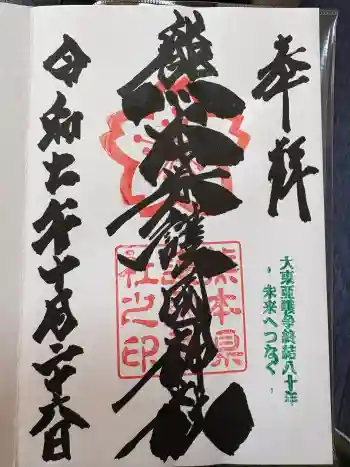 奉拝
大東亞戦争終結八十年
，未来へつなぐ，
熊本県護國神社
熊本県
社之印
令和七年十月二十六日